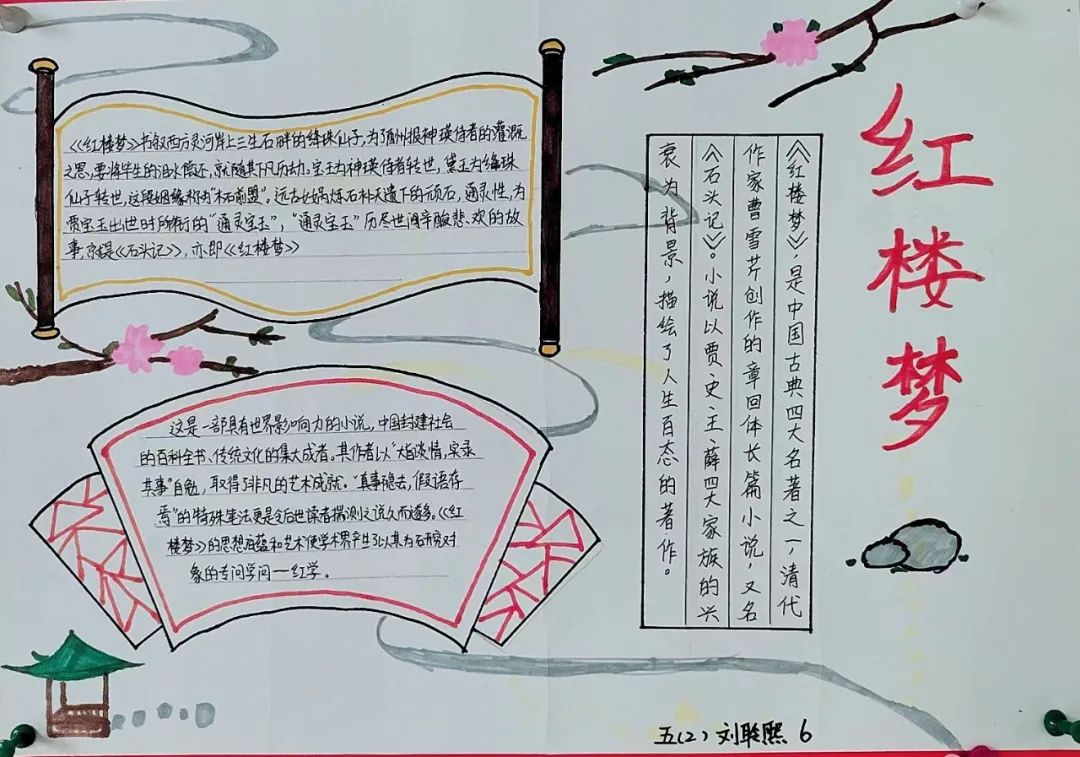 红楼梦
《红楼梦》，是中国古典四大名著之一，清代
作家曹雪芹创作的章回体长篇小说，又名
《石头记》。小说以贾、史、王、薛四大家族的兴
衰为背景，描绘了人生百态的著作。
《红楼梦》书叙西方灵河岸上三生石畔的绛珠仙子，为了酬报神瑛侍者的灌溉
之恩，要将毕生的泪水偿还，就随其下凡历劫。宝玉为神瑛侍者转世，黛玉为绛珠
仙子转世，这段姻缘称为"木石前盟"。远古女娲炼石补天遗下的顽石，通灵性，为
贾宝玉出世时所衔的"通灵宝玉"，"通灵宝玉"历尽世间辛酸悲、欢的故
事，就是《石头记》，亦即《红楼梦》
这是一部具有世界影响力的小说，中国封建社会
的百科全书、传统文化的集大成者。其作者以"大旨谈情，实录
其事"自勉，取得了非凡的艺术成就。"真事隐去，假语存
焉"的特殊笔法更是令后世读者揣测之说久而遂多。《红
楼梦》的思想底蕴和艺术使学术界产生了以其为研究对
象的专门学问—红学。
五(2) 刘聆熙 6